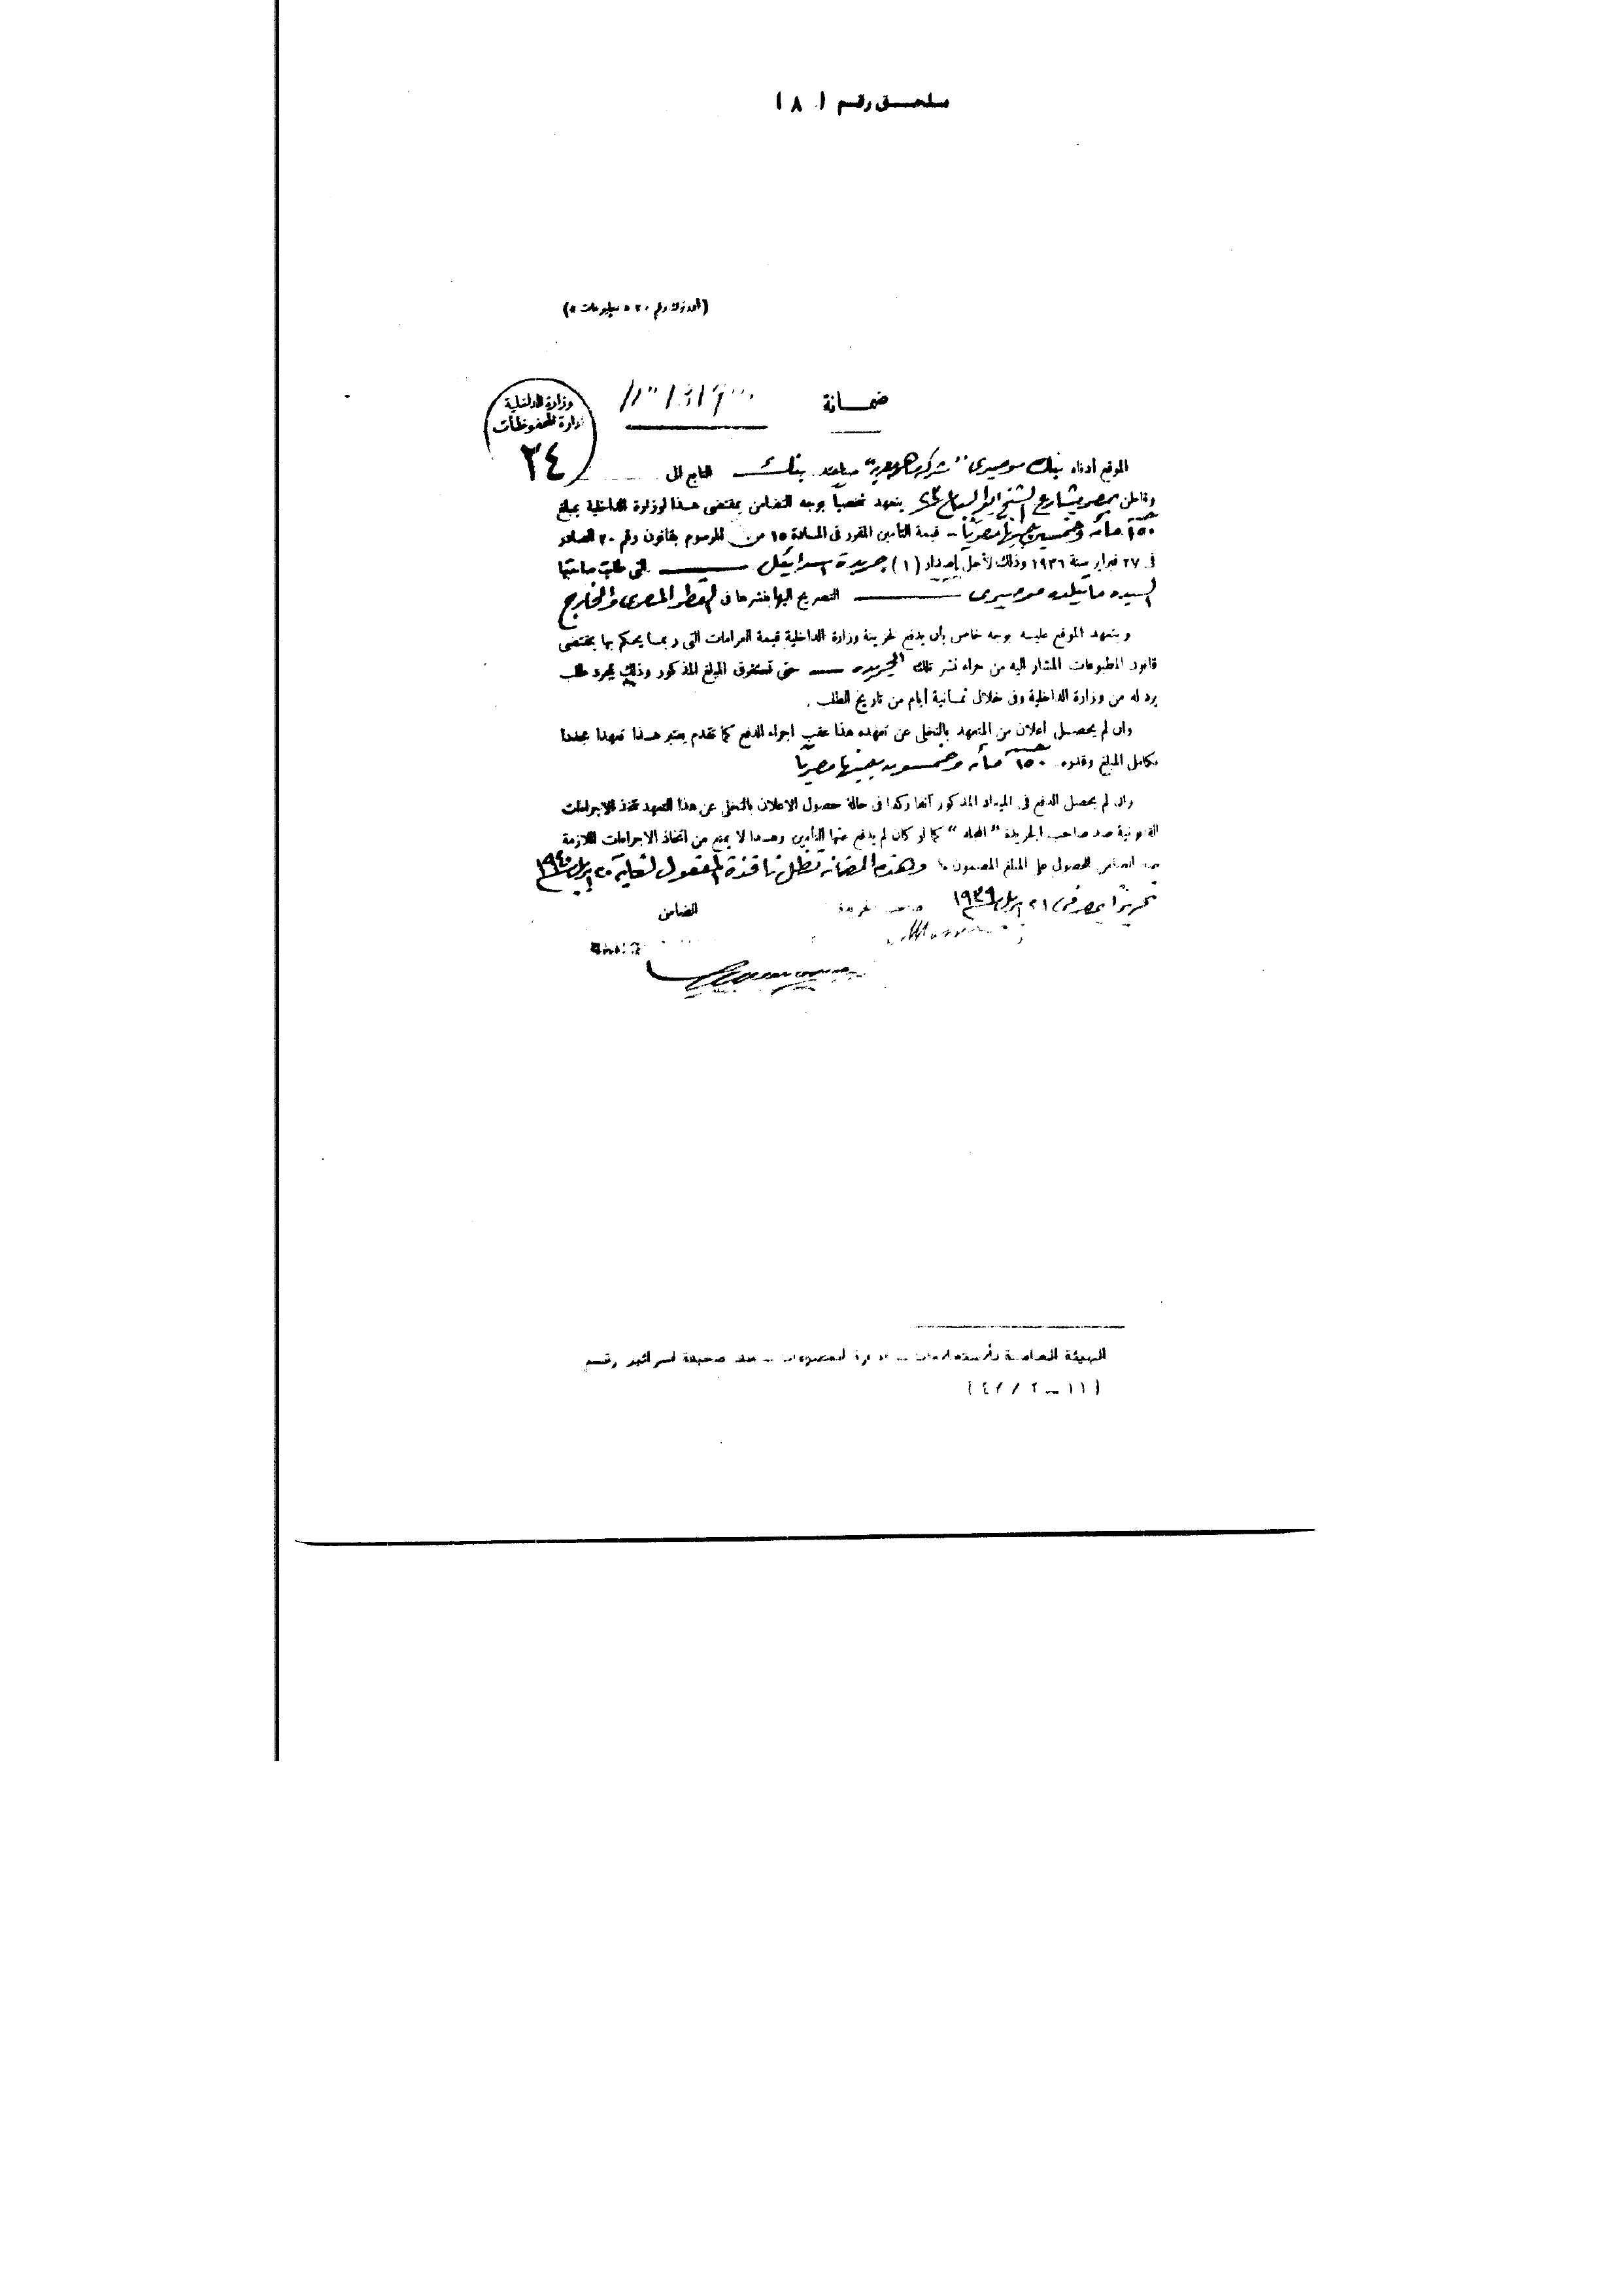 ملحق رقم (٨)
ضمانة
وزارة الداخلية
إدارة المحفوظات
٢٤
الموقع أدناه بنك موصيرى "شركة مساهمة مصرية" بنك التابع الى
وقاطن بمصر بشارع الشيخ ابو السباع يتعهد شخصياً بوجه التضامن بمقتضى هذا لوزارة الداخلية بمبلغ
١٥٠ مائة وخمسين جنيها مصريا - قيمة التأمين المقرر فى المادة ١٥ من المرسوم بقانون رقم ٢٠ الصادر
فى ٢٧ فبراير سنة ١٩٣٦ وذلك لأجل إصدار (١) جريدة اسرائيل التى طلبت صاحبتها
السيده ماتيلده موصيرى التصريح اليها بنشرها فى القطر المصرى والخارج
ويتعهد الموقع عليه بوجه خاص بأن يدفع لخزينة وزارة الداخلية قيمة الغرامات التى ربما يحكم بها بمقتضى
قانون المطبوعات المشار اليه من جراء نشر تلك الجريده حتى تستغرق المبلغ المذكور وذلك بمجرد طلب
يرد له من وزارة الداخلية وفى خلال ثمانية أيام من تاريخ الطلب .
وان لم يحصل اعلان من المتعهد بالتخلى عن تعهده هذا عقب اجراء الدفع كما تقدم يعتبر هذا تعهدا مجددا
بكامل المبلغ وقدره ١٥٠ مائه وخمسون جنيها مصريا
وان لم يحصل الدفع فى الميعاد المذكور آنفا وكذا فى حالة حصول الاعلان بالتخلى عن هذا التعهد تتخذ الاجراءات
القانونية ضد صاحب الجريدة "المجلة" كما لو كان لم يدفع عنها التأمين وهذا لا يمنع من اتخاذ الاجراءات اللازمة
ضد الضامن للحصول على المبلغ المضمون ، وهذه الضمانه تظل نافذة المفعول لغاية ٢٠ ابريل ١٩٤٠
تحريرا بمصر فى ٢١ ابريل ١٩٣٩ صاحب الجريدة الضامن
الهيئة العامة - ادارة المطبوعات - ملف صحيفة اسرائيل رقم